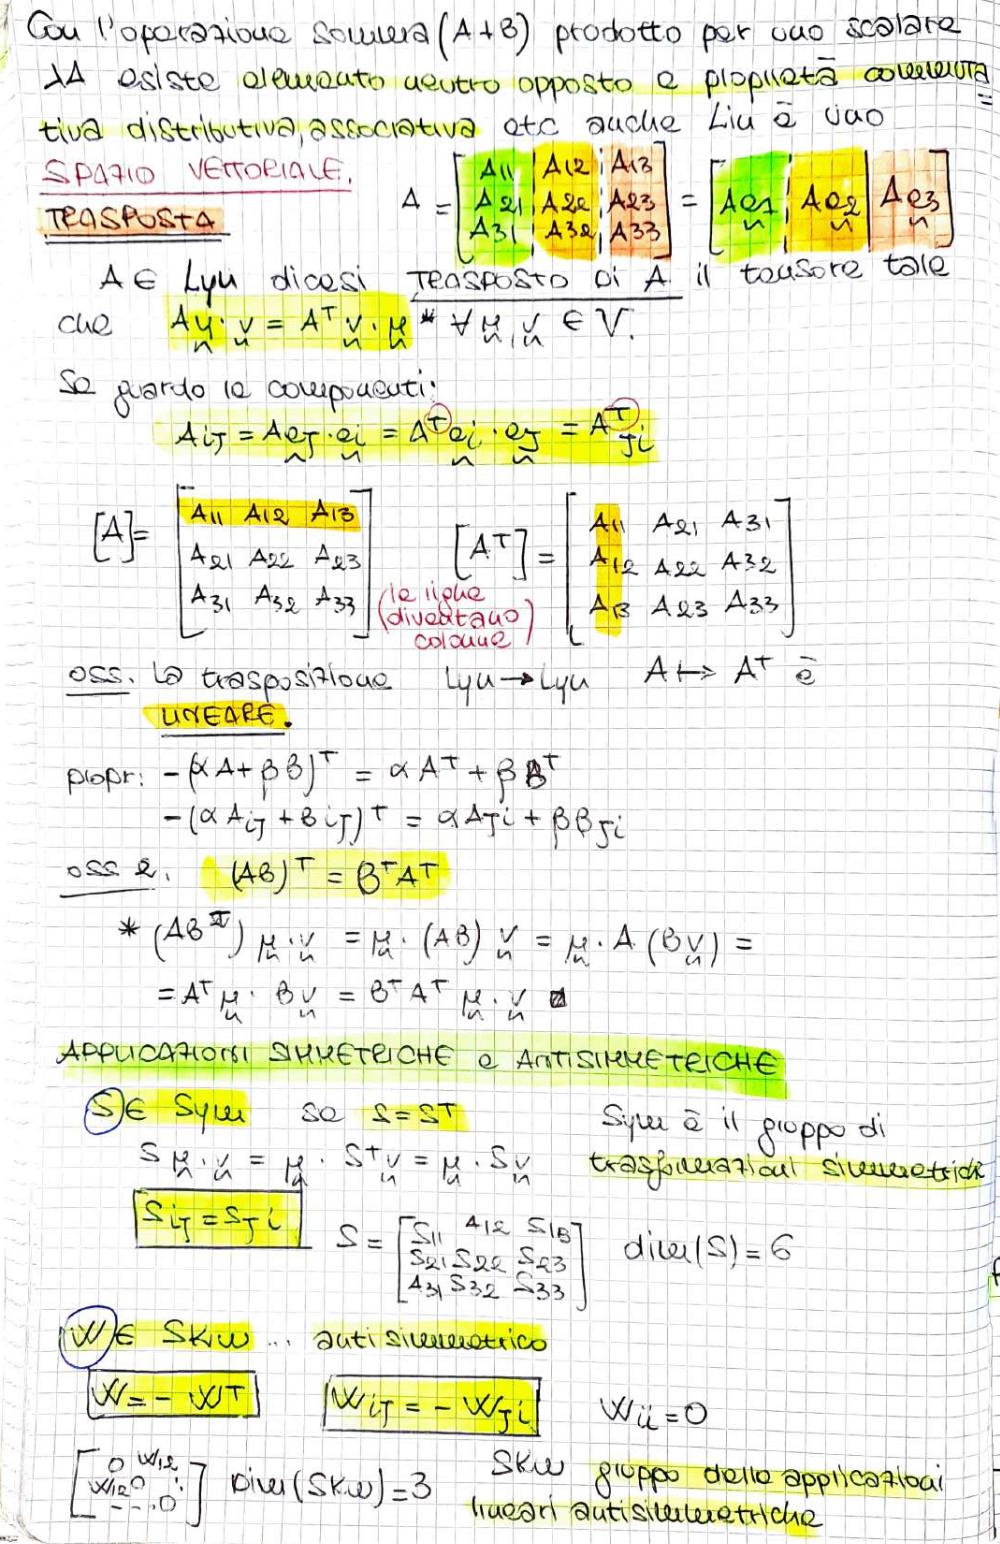 Con l'operazione somma (A+B) prodotto per uno scalare
λA esiste elemento neutro opposto e proprietà commuta=
tiva distributiva, associativa etc anche Lin è uno
SPAZIO VETTORIALE.
A = [A11 A12 A13 = [Ae1 Ae2 Ae3]
A21 A22 A23
A31 A32 A33]
TRASPOSTA
A ∈ Lyn dicesi TRASPOSTO DI A il tensore tale
che Au · v = A^T v · u * ∀ u, v ∈ V.
Se guardo le componenti:
Aij = Aej · ei = A^T ei · ej = A^T ji
[A] = [A11 A12 A13
A21 A22 A23
A31 A32 A33]
(le righe diventano colonne)
[A^T] = [A11 A21 A31
A12 A22 A32
A13 A23 A33]
oss. La trasposizione Lyn → Lyn A ↦ A^T è
LINEARE.
propr: - (αA + βB)^T = αA^T + βB^T
- (αAij + Bij)^T = αAji + βBji
oss 2. (AB)^T = B^T A^T
* (AB^T) u · v = u · (AB) v = u · A (Bv) =
= A^T u · Bv = B^T A^T u · v
APPLICAZIONI SIMMETRICHE e ANTISIMMETRICHE
S ∈ Sym se S = S^T
Sym è il gruppo di
trasformazioni simmetrich
S u · v = u · S^T v = u · S v
Sij = Sji
S = [S11 A12 S13
S21 S22 S23
A31 S32 S33]
dim(S) = 6
W ∈ SKW ... antisimmetrico
W = - W^T
Wij = - Wji
Wii = 0
[0 W12
W12 0 :
- - . 0]
Dim(SKW) = 3
SKW gruppo delle applicazioni
lineari antisimmetriche